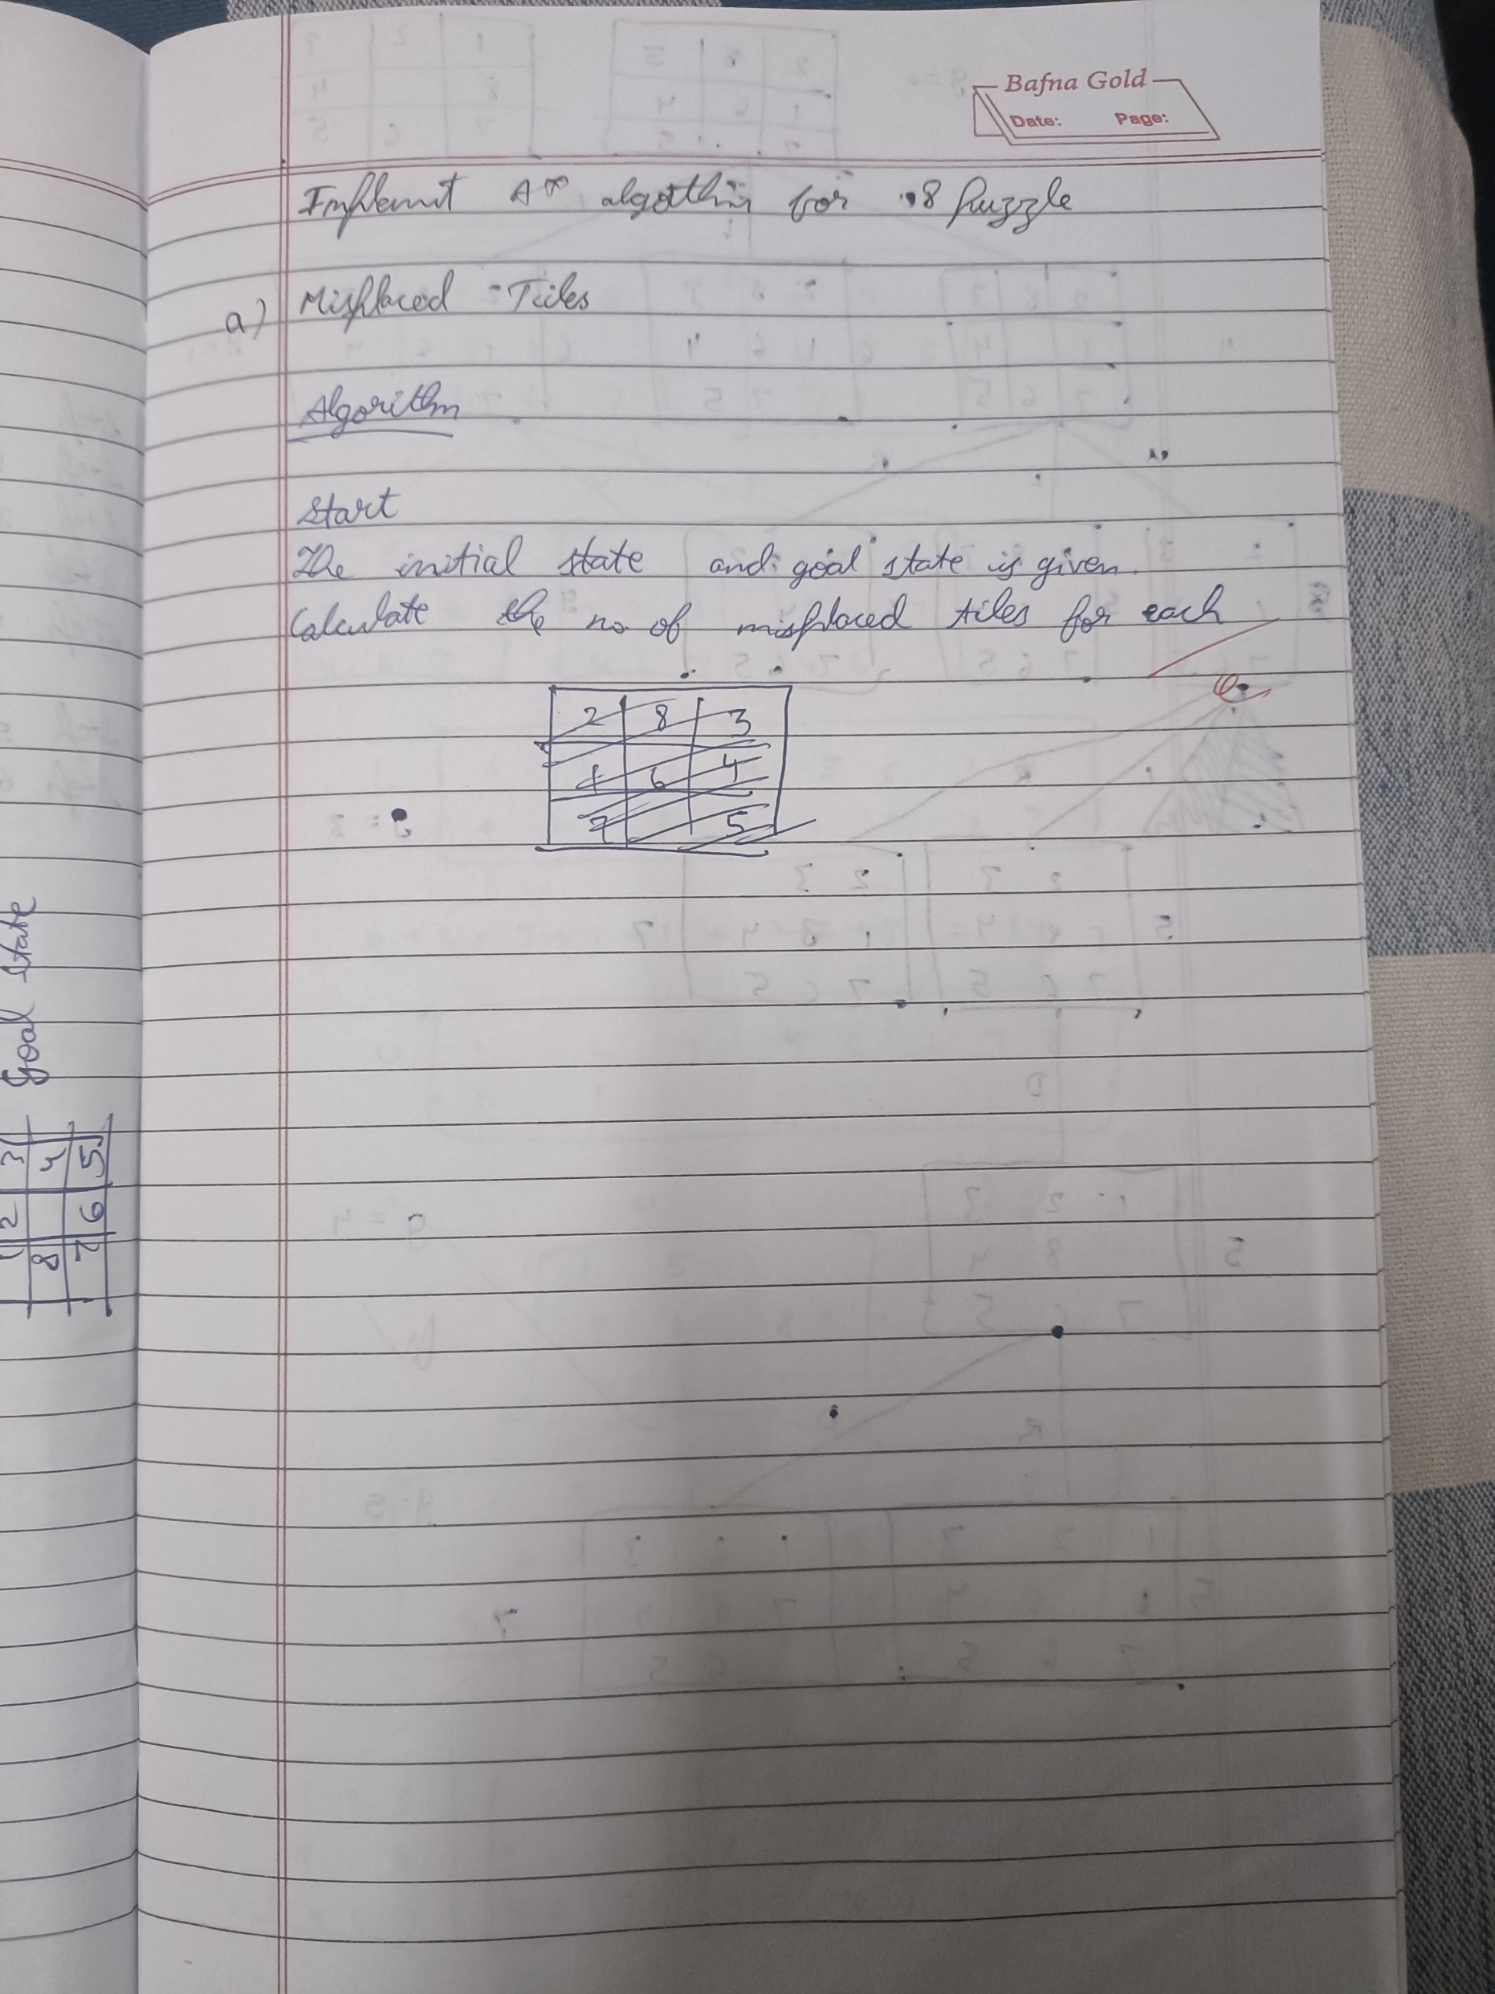 Bafna Gold
Date: Page:
Implemnt A* algothm for 8 puzzle
a) Misplaced Tiles
Algorithm
Start
The initial state and goal state is given.
Calculate the no of misplaced tiles for each
2 8 3
1 6 4
7 5
Goal State
1 2 3
8 4
7 6 5